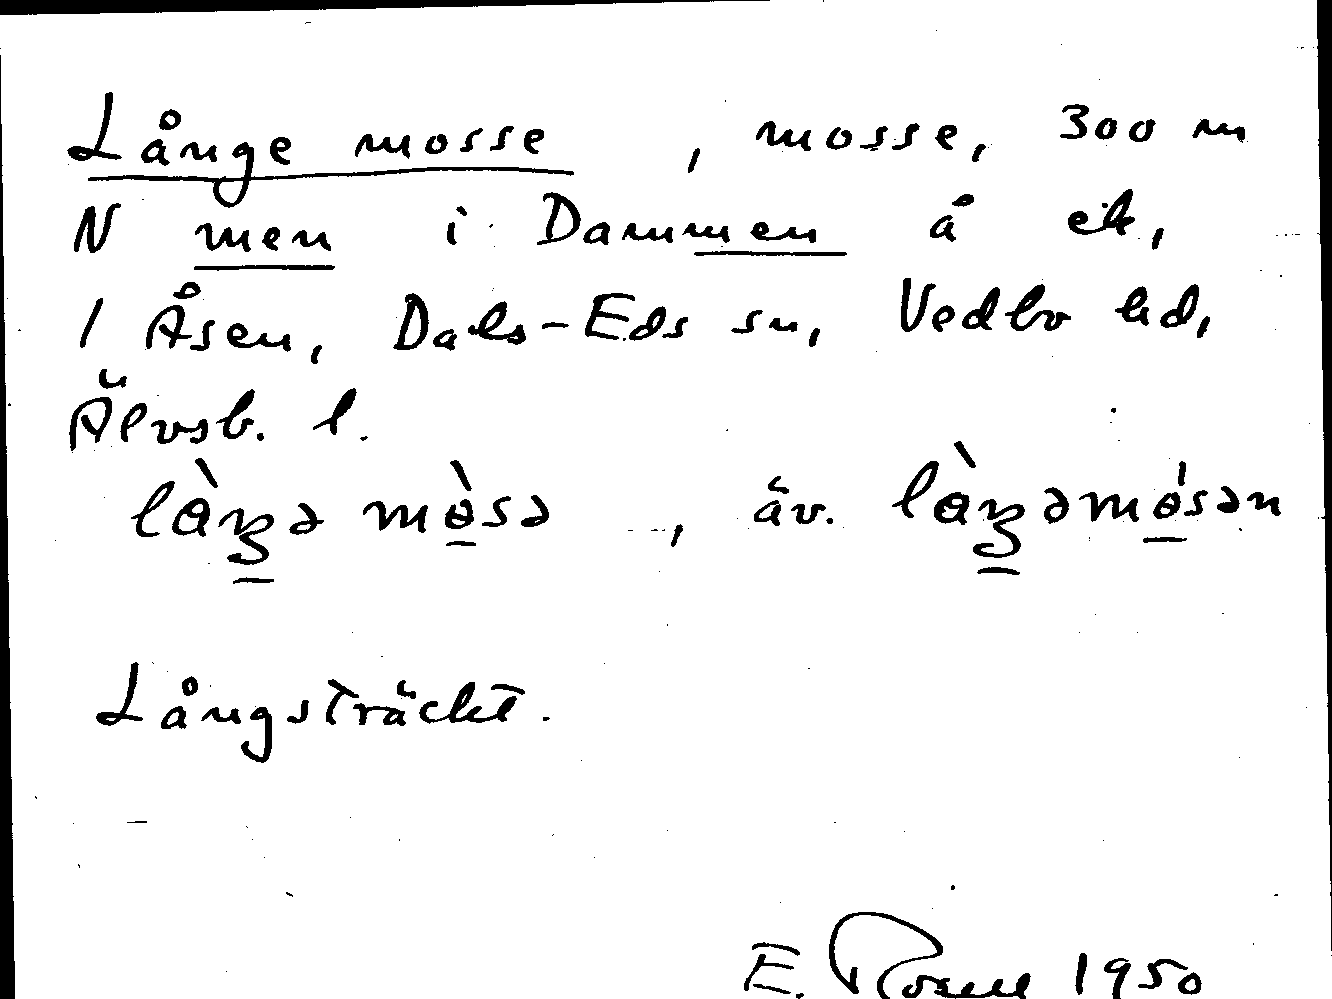 Långe mosse , mosse, 300 m
N men i Dammen å ek,
1 Åsen, Dals-Eds sn, Vedbo hd,
Älvsb. l.
, äv.
Långsträckt.
E. 1950